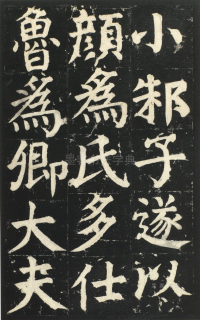 小邾子遂以
顔爲氏多仕
魯爲卿大夫